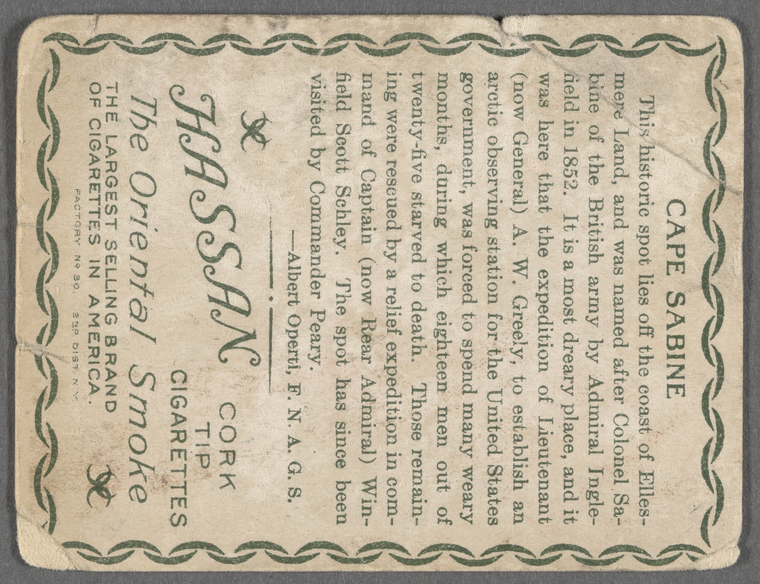 CAPE SABINE
This historic spot lies off the coast of Elles-
mere Land, and was named after Colonel Sa-
bine of the British army by Admiral Ingle-
field in 1852. It is a most dreary place, and it
was here that the expedition of Lieutenant
(now General) A. W. Greely, to establish an
arctic observing station for the United States
government, was forced to spend many weary
months, during which eighteen men out of
twenty-five starved to death. Those remain-
ing were rescued by a relief expedition in com-
mand of Captain (now Rear Admiral) Win-
field Scott Schley. The spot has since been
visited by Commander Peary.
—Albert Operti, F. N. A. G. S.
HASSAN CORK
TIP
CIGARETTES
The Oriental Smoke
THE LARGEST SELLING BRAND
OF CIGARETTES IN AMERICA.
FACTORY Nº 30. 2ND DIST. N.Y.